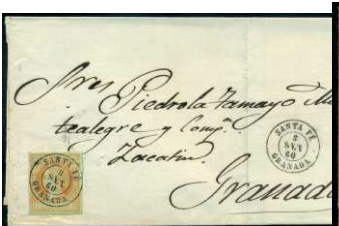 Sres
Piedrola Tamayo
tealegre y Comp.ª
Zacatin.
Granad
SANTA FÉ
8
SET
60
GRANADA
SANTA FÉ
8
SET
60
GRANADA